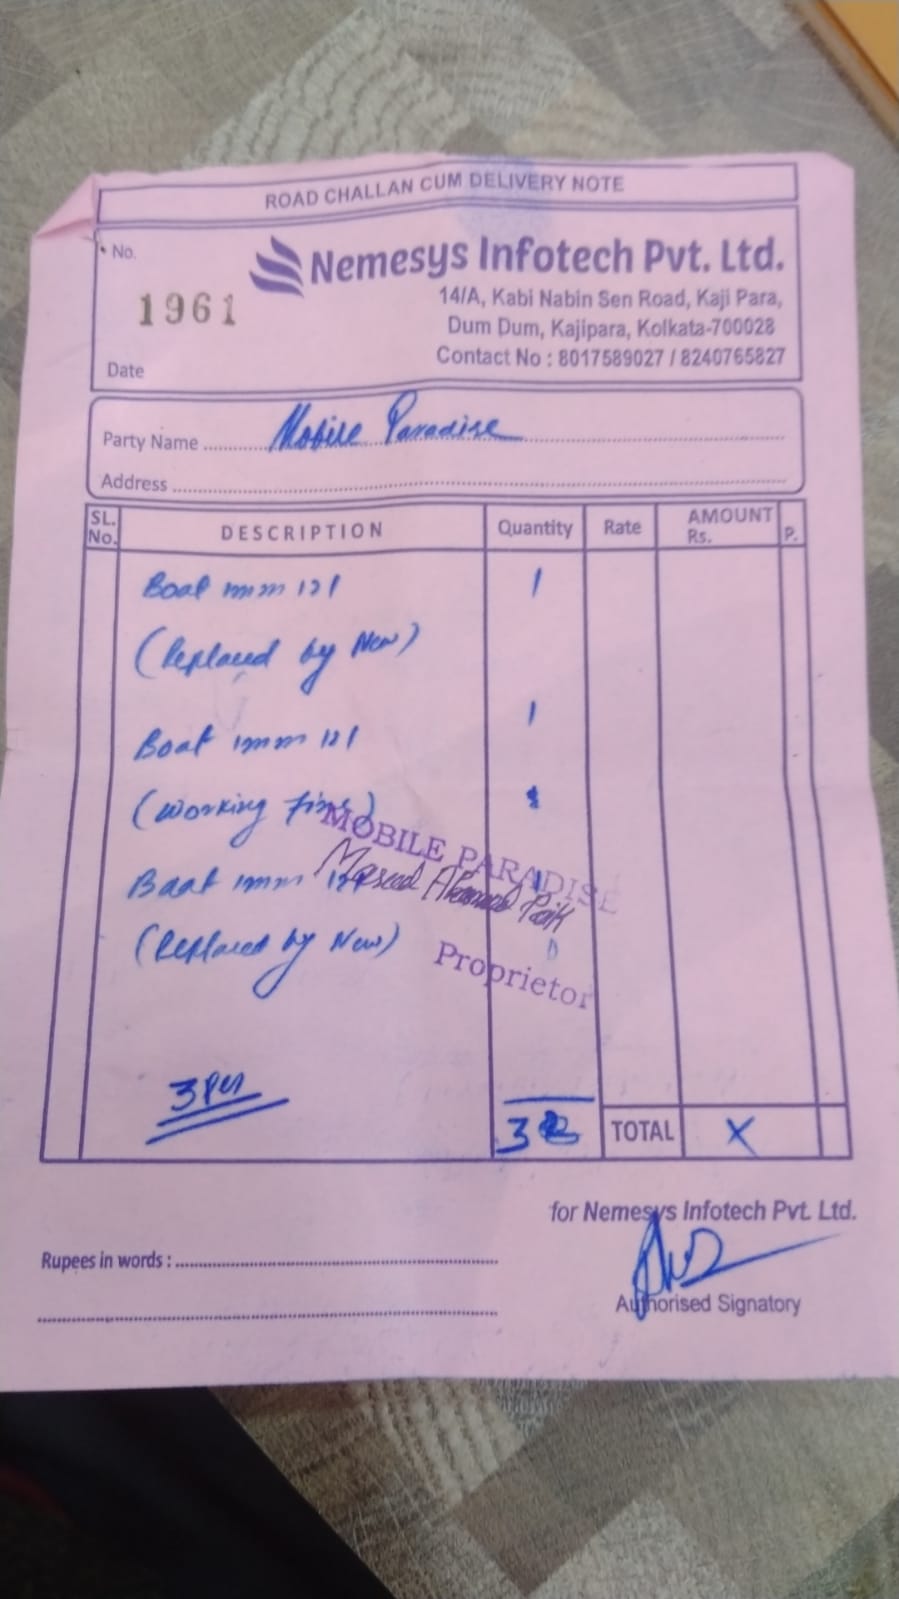 ROAD CHALLAN CUM DELIVERY NOTE
No.
1961
Nemesys Infotech Pvt. Ltd.
14/A, Kabi Nabin Sen Road, Kaji Para,
Dum Dum, Kajipara, Kolkata-700028
Contact No : 8017589027 / 8240765827
Date
Party Name Mobile Paradise
Address
SL. No. DESCRIPTION Quantity Rate AMOUNT Rs. P.
Boat 121 1
(Replaced by New)
Boat 121 1
(Working fine)
Boat
(Replaced by New)
MOBILE PARADISE
Proprietor
3 Pcs
3 TOTAL X
for Nemesys Infotech Pvt. Ltd.
Rupees in words :
Authorised Signatory